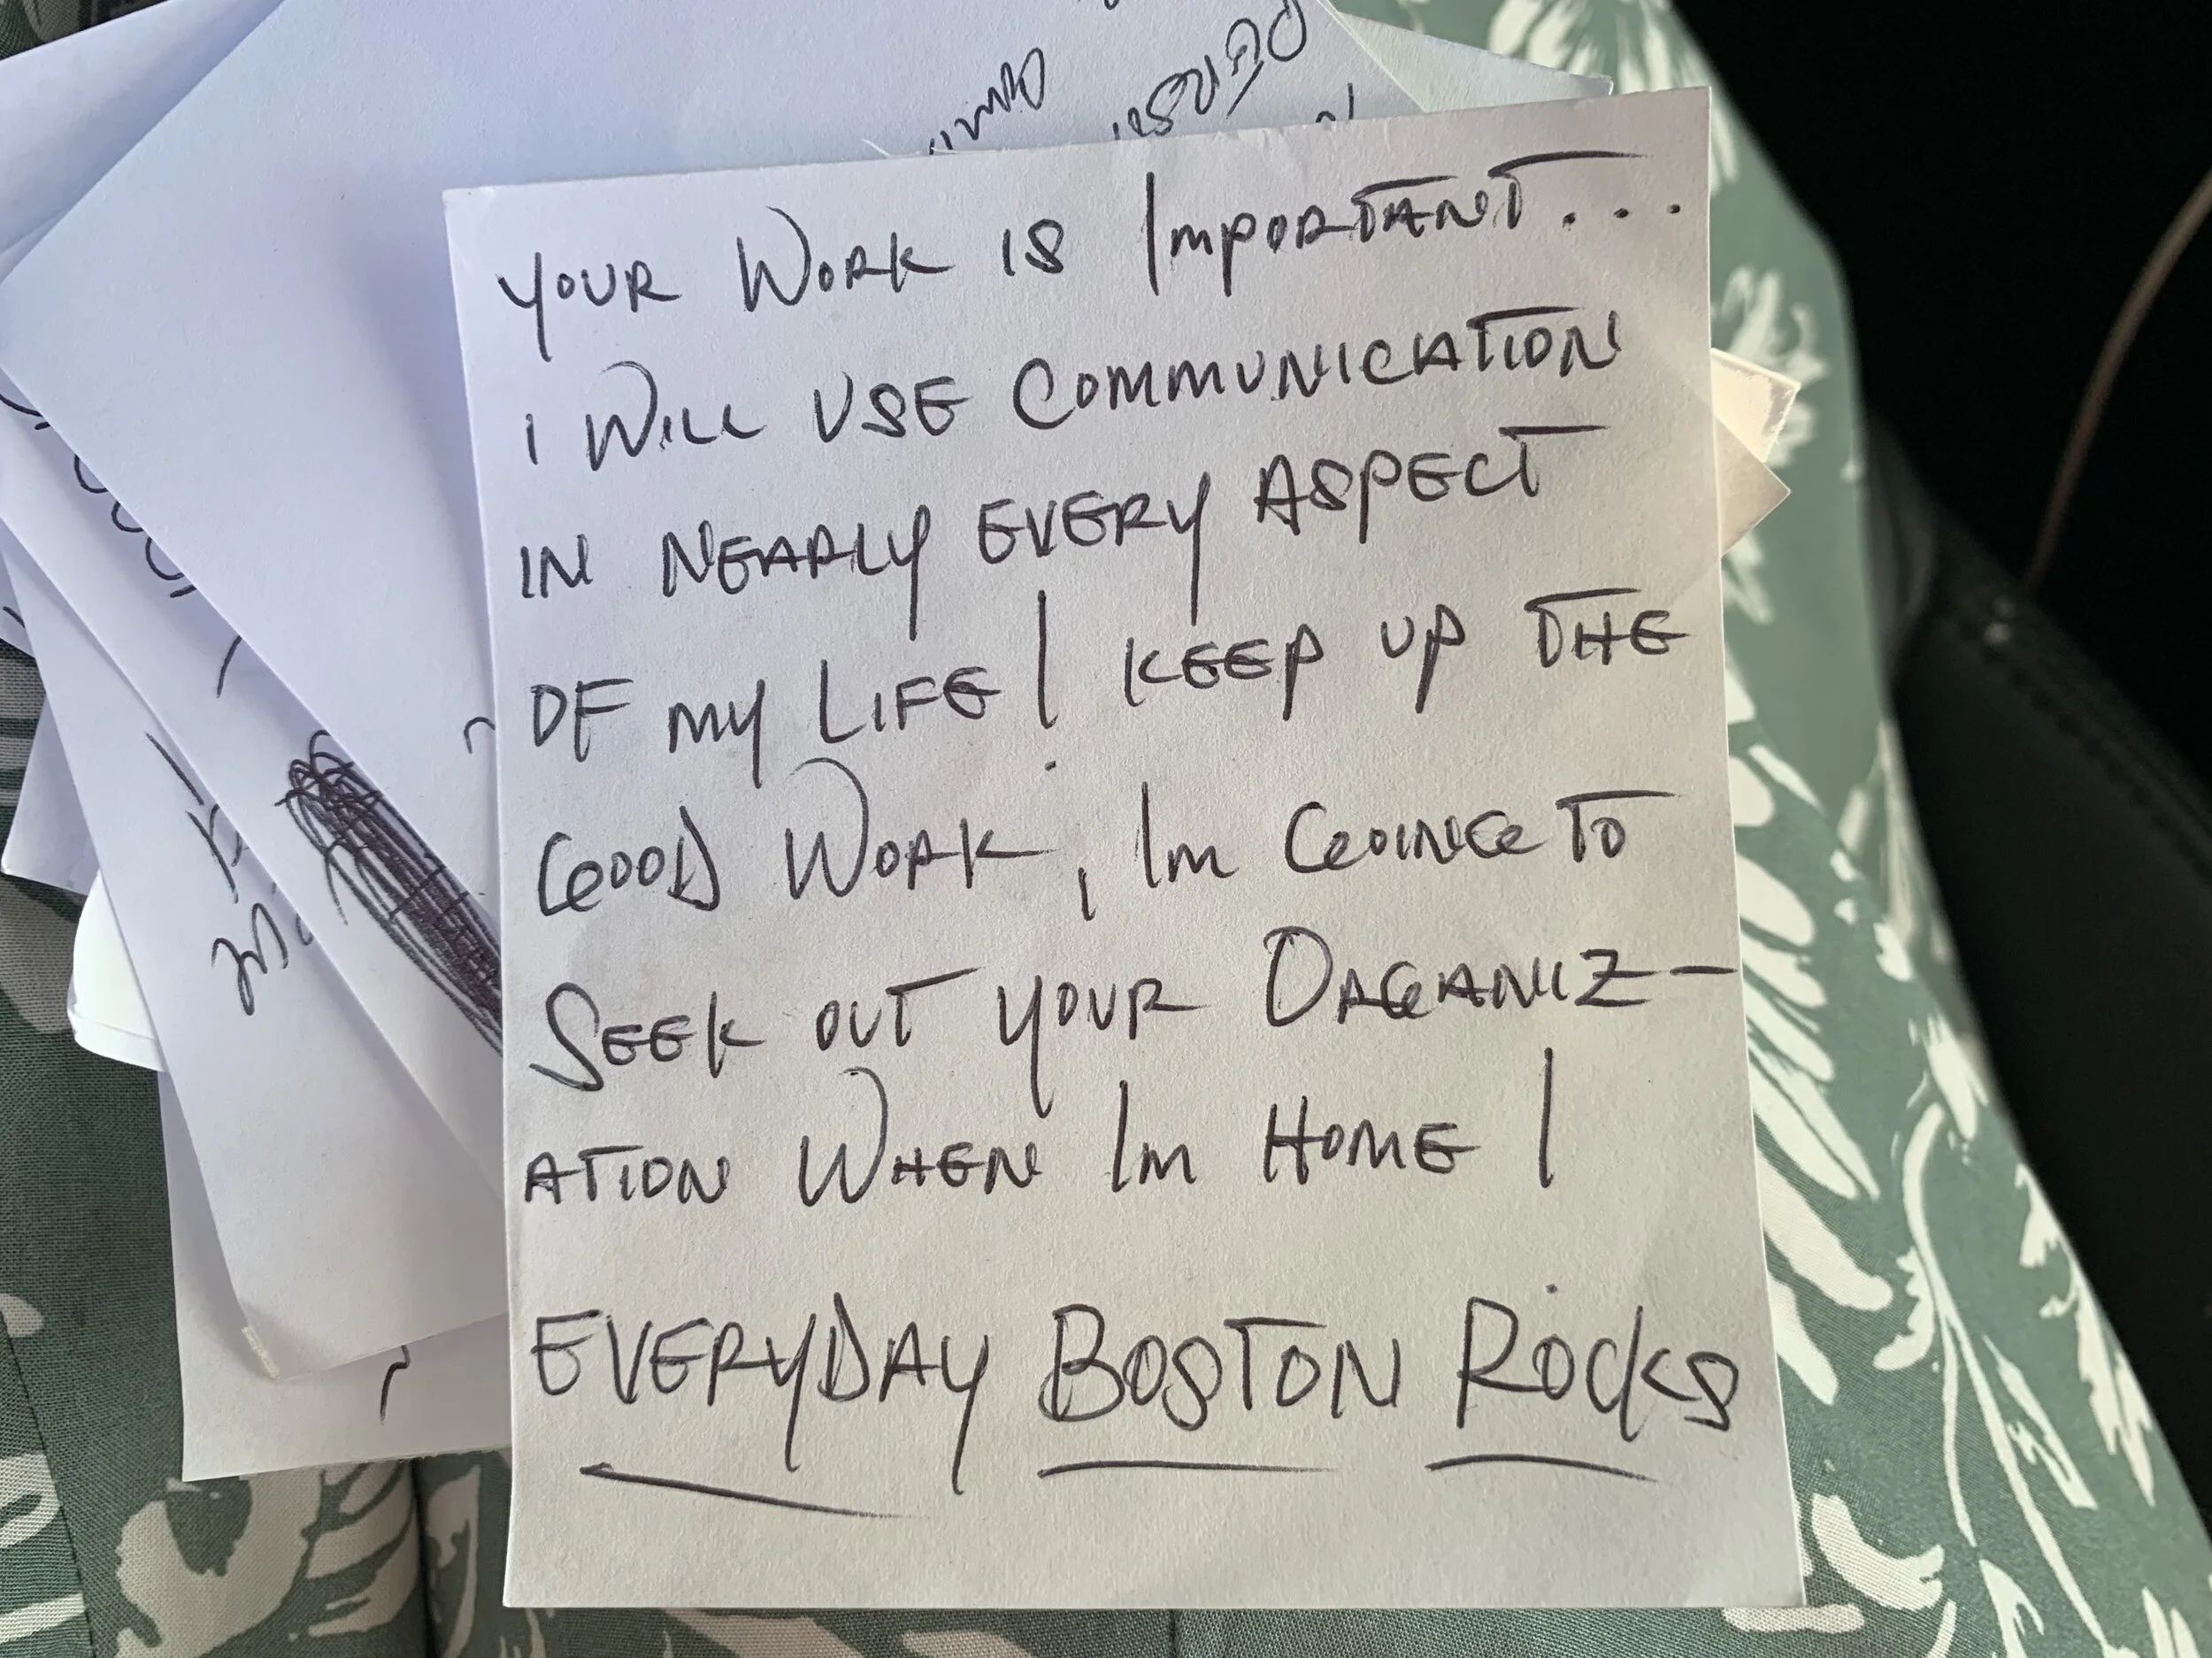 YOUR WORK IS IMPORTANT...
I WILL USE COMMUNICATION
IN NEARLY EVERY ASPECT
OF MY LIFE! KEEP UP THE
GOOD WORK, IM GOING TO
SEEK OUT YOUR ORGANIZ-
ATION WHEN IM HOME!
EVERYDAY BOSTON ROCKS